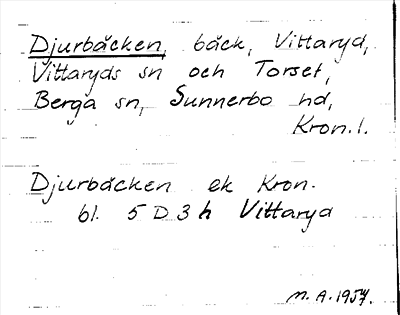 Djurbäcken, bäck, Vittaryd,
Vittaryds sn och Torset,
Berga sn, Sunnerbo hd,
Kron. l.
Djurbäcken ek Kron.
bl. 5 D 3 h Vittaryd
M. A. 1957.